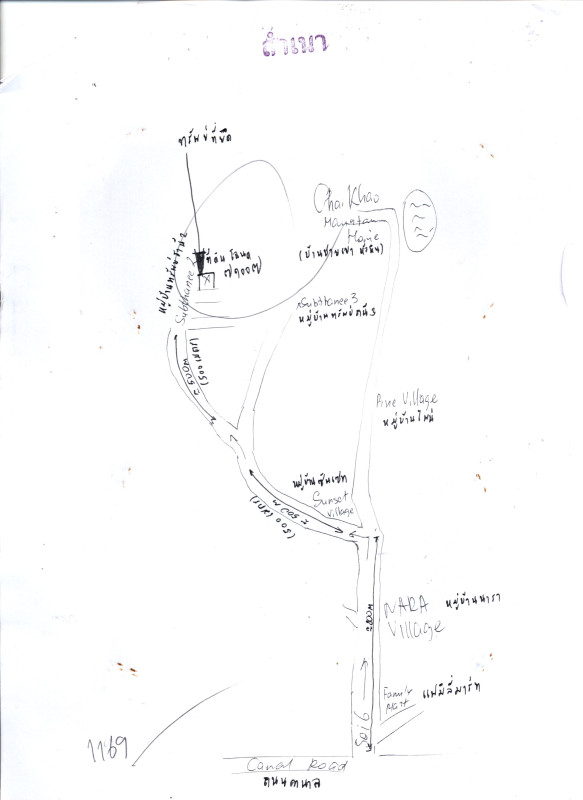 สำเนา
ทรัพย์ที่ยึด
Chai Khao
Mountain
Home
(บ้านชายเขา หัวหิน)
ที่ดิน โฉนด
หมู่บ้านทรัพย์ธานี 2
Subthanee 2
Subthanee 3
หมู่บ้านทรัพย์ธานี 3
Pine Village
หมู่บ้านไพน์
หมู่บ้านซันเซท
Sunset
Village
NARA
Village
หมู่บ้านนารา
Family
Mart
แฟมิลี่มาร์ท
Canal Road
ถนนคานาล